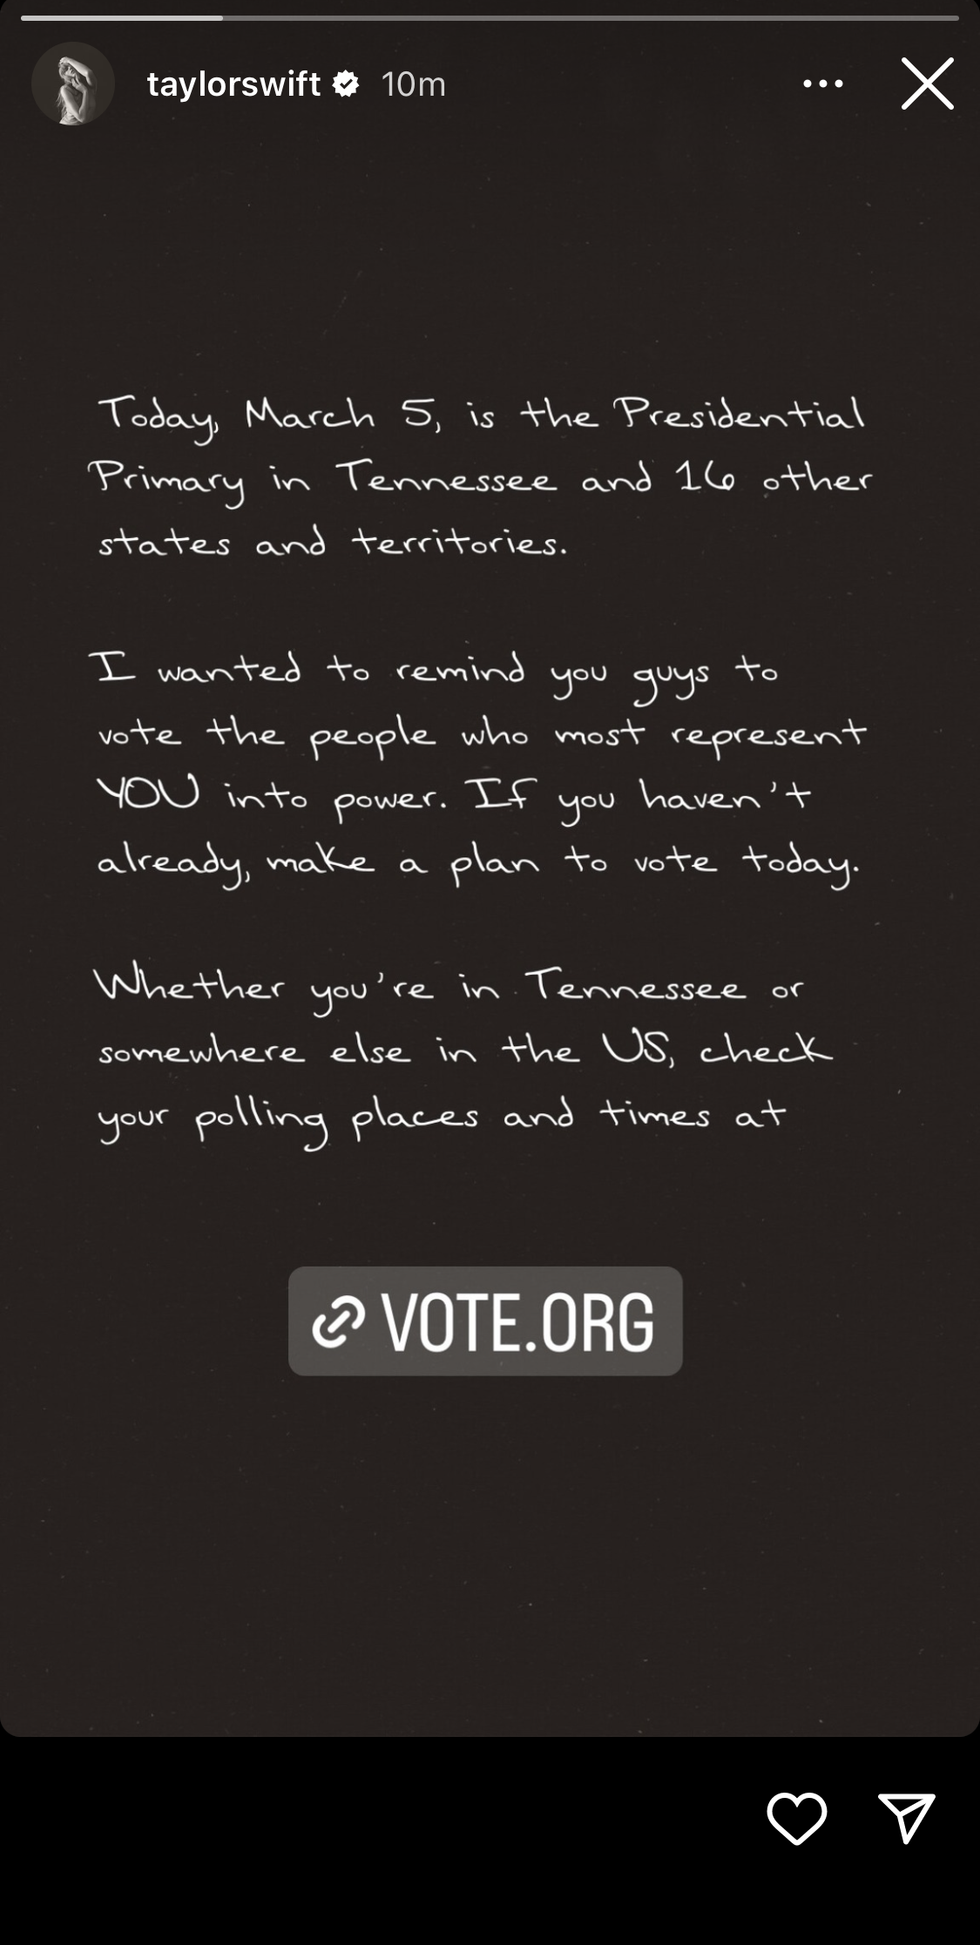 taylorswift 10m
Today, March 5, is the Presidential
Primary in Tennessee and 16 other
states and territories.
I wanted to remind you guys to
vote the people who most represent
YOU into power. If you haven't
already, make a plan to vote today.
Whether you're in Tennessee or
somewhere else in the US, check
your polling places and times at
VOTE.ORG